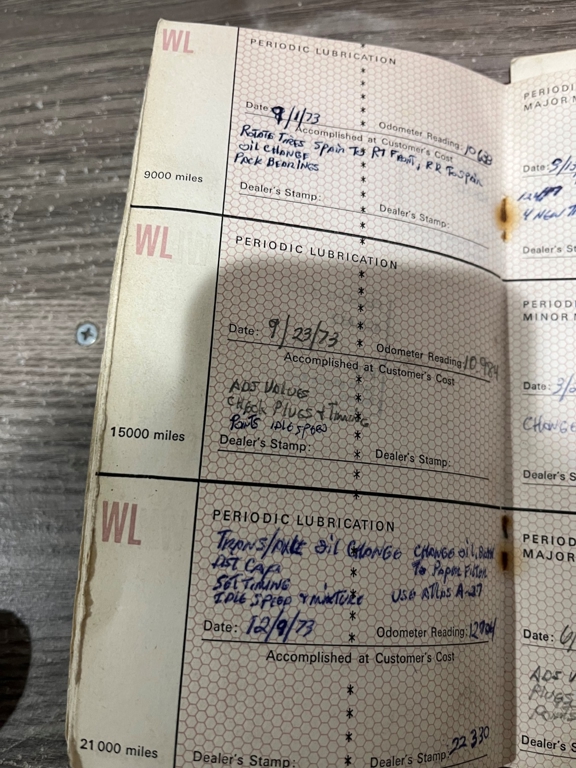 WL
PERIODIC LUBRICATION
Date: 9/1/73
Odometer Reading:
Accomplished at Customer's Cost
ROTATE TIRES SPAIR TO RT FRONT, RR TO SPAIR
OIL CHANGE
PACK BEARINGS
Dealer's Stamp:
Dealer's Stamp:
9000 miles
WL
PERIODIC LUBRICATION
Date: 9/23/73
Odometer Reading: 10,984
Accomplished at Customer's Cost
ADJ VALVES
CHECK PLUGS + TIMING
POINTS IDLE SPEED
Dealer's Stamp:
Dealer's Stamp:
15000 miles
WL
PERIODIC LUBRICATION
TRANS/AXLE OIL CHANGE
CHANGE OIL,
DIST CAP
TO PAPER FILTER
SET TIMING
IDLE SPEED + MIXTURE
USE ATLAS A-27
Date: 12/9/73
Odometer Reading: 12904
Accomplished at Customer's Cost
Dealer's Stamp:
Dealer's Stamp: 22 330
21000 miles
PERIODI
MAJOR M
Date: 5/13
4 NEW T
Dealer's St
PERIOD
MINOR M
Date: 3/2
CHANGE
Dealer's S
PERIOD
MAJOR
Date: 6/
ADJ V
PLUGS
POINTS
Dealer's S